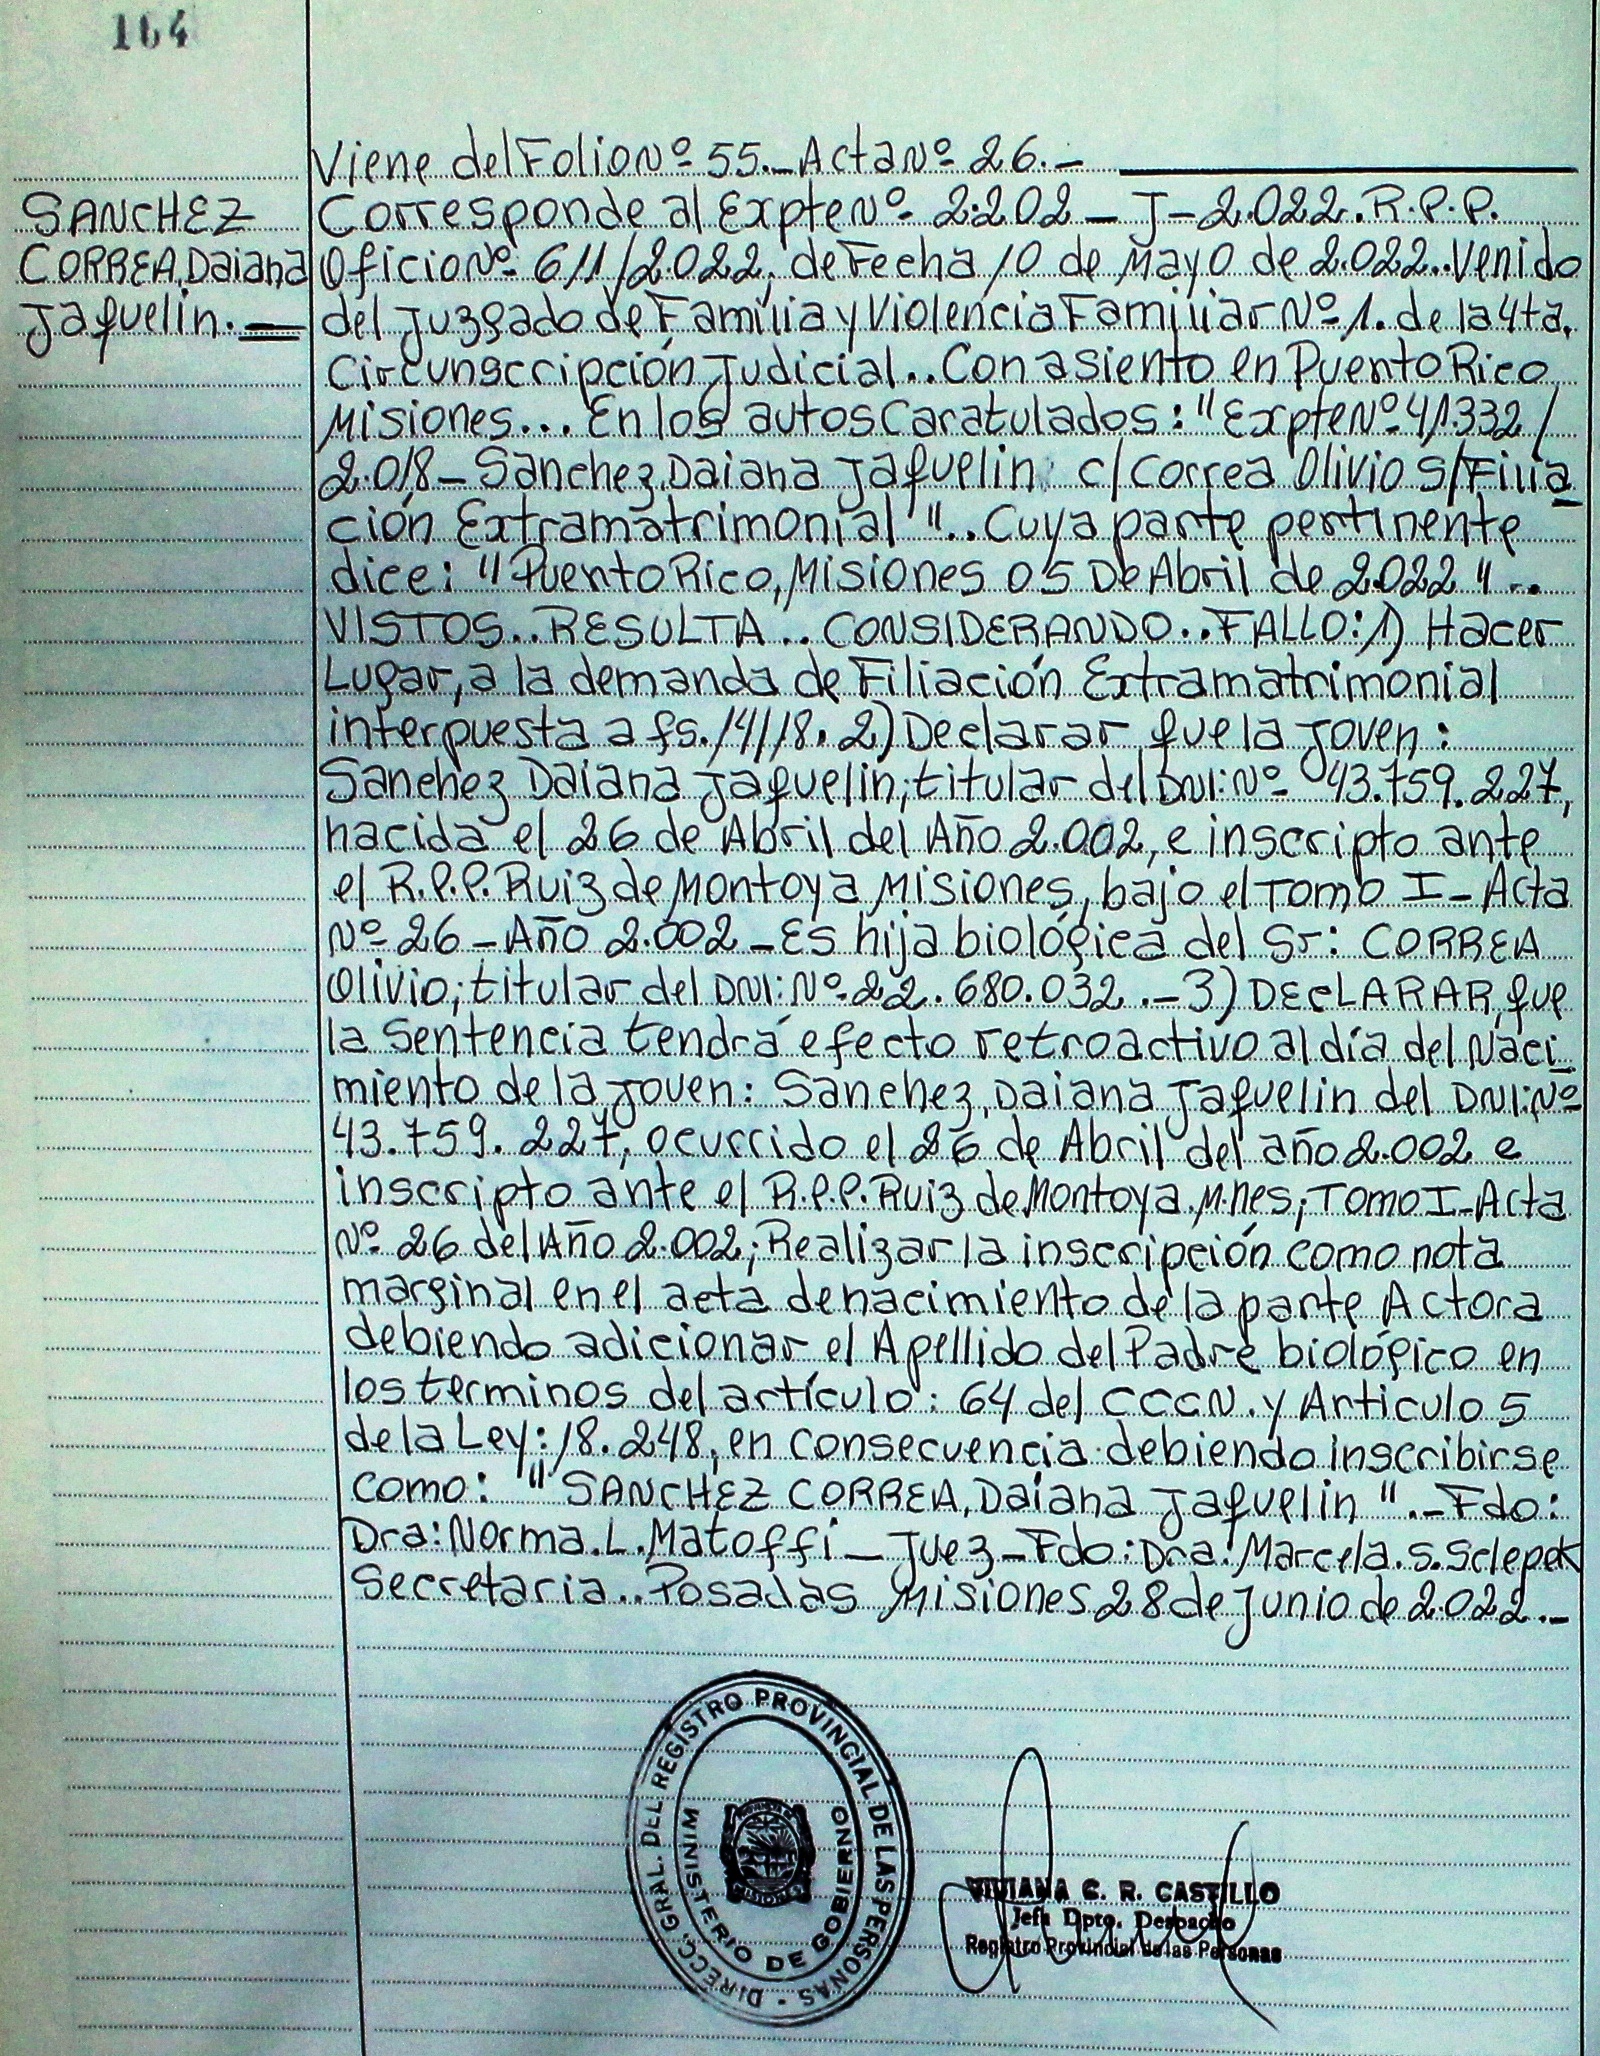 164
Viene del Folio Nº 55.- Acta Nº 26.-
SANCHEZ
CORREA, Daiana
Jaquelin.-
Corresponde al Expte Nº 2.202 - J - 2.022. R.P.P.
Oficio Nº 611/2.022, de Fecha 10 de Mayo de 2.022.. Venido
del Juzgado de Familia y Violencia Familiar Nº 1. de la 4ta.
Circunscripción Judicial.. Con asiento en Puerto Rico,
Misiones... En los autos Caratulados: "Expte Nº 41332/
2.018 - Sanchez, Daiana Jaquelin c/ Correa Olivio S/Filia
ción Extramatrimonial".. Cuya parte pertinente
dice: "Puerto Rico, Misiones 05 De Abril de 2.022"..
VISTOS.. RESULTA.. CONSIDERANDO.. FALLO: 1) Hacer
Lugar, a la demanda de Filiación Extramatrimonial
interpuesta a fs. 14/18. 2) Declarar que la Joven:
Sanchez Daiana Jaquelin; titular del DNI: Nº 43.759.227,
nacida el 26 de Abril del Año 2.002, e inscripto ante
el R.P.P. Ruiz de Montoya Misiones, bajo el Tomo I - Acta
Nº 26 - Año 2.002 - Es hija biológica del Sr: CORREA
Olivio; titular del DNI: Nº 22.680.032.- 3) DECLARAR, que
la Sentencia tendrá efecto retroactivo al día del Naci
miento de la Joven: Sanchez, Daiana Jaquelin del DNI: Nº
43.759.227, ocurrido el 26 de Abril del año 2.002 e
inscripto ante el R.P.P. Ruiz de Montoya. M.nes; Tomo I - Acta
Nº 26 del Año 2.002; Realizar la inscripción como nota
marginal en el acta de nacimiento de la parte Actora
debiendo adicionar el Apellido del Padre biológico en
los terminos del artículo: 64 del CCCN. y Articulo 5
de la Ley: 18.248, en consecuencia debiendo inscribirse
como: "SANCHEZ CORREA, Daiana Jaquelin".- Fdo:
Dra: Norma. L. Matoffi - Juez - Fdo: Dra: Marcela. S. Sclepek
Secretaria.. Posadas Misiones 28 de Junio de 2.022.-
DIRECC. GRAL. DEL REGISTRO PROVINCIAL DE LAS PERSONAS
MINISTERIO DE GOBIERNO
VIVIANA C. R. CASTILLO
Jefa Dpto. Despacho
Registro Provincial de las Personas